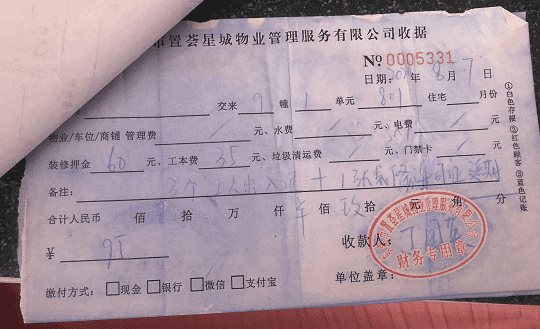 市置荟星城物业管理服务有限公司收据
No 0005331
日期: 年 8 月 7 日
交来 9 幢 1 单元 801 住宅 月份
物业/车位/商铺 管理费 / 元、水费 / 元、电费 / 元
装修押金 60 元、工本费 35 元、垃圾清运费 / 元、门禁卡 / 元
备注: 3个 + 1张装修许可证延期
合计人民币 佰 拾 万 仟 佰 玖 拾 元 角 分
¥ 95
收款人:
单位盖章:
缴付方式: □现金 □银行 □微信 □支付宝
①白色存根 ②红色顾客 ③蓝色记账
市置荟星城物业管理服务有限公司
财务专用章